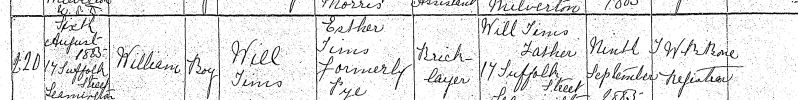 Morris Assistant Milverton 1885
220
Sixth
August
1885
17 Suffolk
Street
Leamington
William
Boy
Will
Tims
Esther
Tims
formerly
Pye
Brick-
layer
Will Tims
Father
17 Suffolk
Street
Ninth
September
1885
Registrar